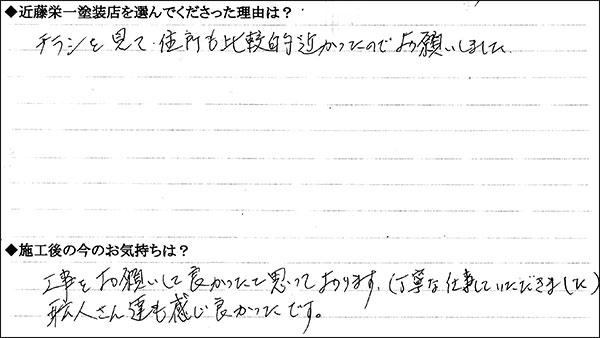 ◆近藤栄一塗装店を選んでくださった理由は？
チラシを見て住所も比較的近かったのでお願いしました
◆施工後の今のお気持ちは？
工事をお願いして良かったと思っております。(丁寧な仕事していただきました)
職人さん達も感じ良かったです。